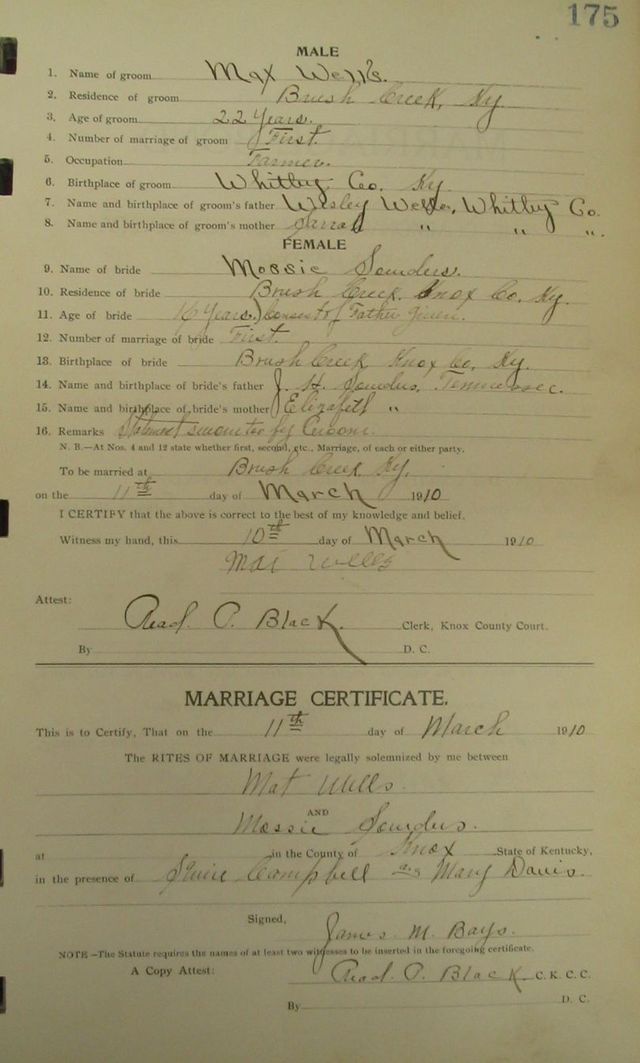 175
MALE
1. Name of groom Max Wells.
2. Residence of groom Brush Creek, Ky.
3. Age of groom 22 Years.
4. Number of marriage of groom First.
5. Occupation Farmer.
6. Birthplace of groom Whitley Co. Ky.
7. Name and birthplace of groom's father Wesley Wells, Whitley Co.
8. Name and birthplace of groom's mother Sarrah " " ".
FEMALE
9. Name of bride Mossie Saunders.
10. Residence of bride Brush Creek, Knox Co. Ky.
11. Age of bride 16 Years. Consent of Father given.
12. Number of marriage of bride First.
13. Birthplace of bride Brush Creek Knox Co, Ky.
14. Name and birthplace of bride's father J. H. Saunders, Tennessee.
15. Name and birthplace of bride's mother Elizabeth "
16. Remarks Statement sworn to by Groom.
N. B.—At Nos. 4 and 12 state whether first, second, etc., Marriage, of each or either party.
To be married at Brush Creek Ky.
on the 11th day of March 1910
I CERTIFY that the above is correct to the best of my knowledge and belief.
Witness my hand, this 10th day of March 1910
Mat Wells
Attest:
Read P. Black. Clerk, Knox County Court.
By D. C.
MARRIAGE CERTIFICATE.
This is to Certify, That on the 11th day of March 1910
The RITES OF MARRIAGE were legally solemnized by me between
Mat Wells.
AND
Mossie Saunders.
at in the County of Knox State of Kentucky,
in the presence of Squire Campbell and Mary Davis.
Signed, James M. Bays.
NOTE—The Statute requires the names of at least two witnesses to be inserted in the foregoing certificate.
A Copy Attest: Read P. Black. C. K. C. C.
By D. C.